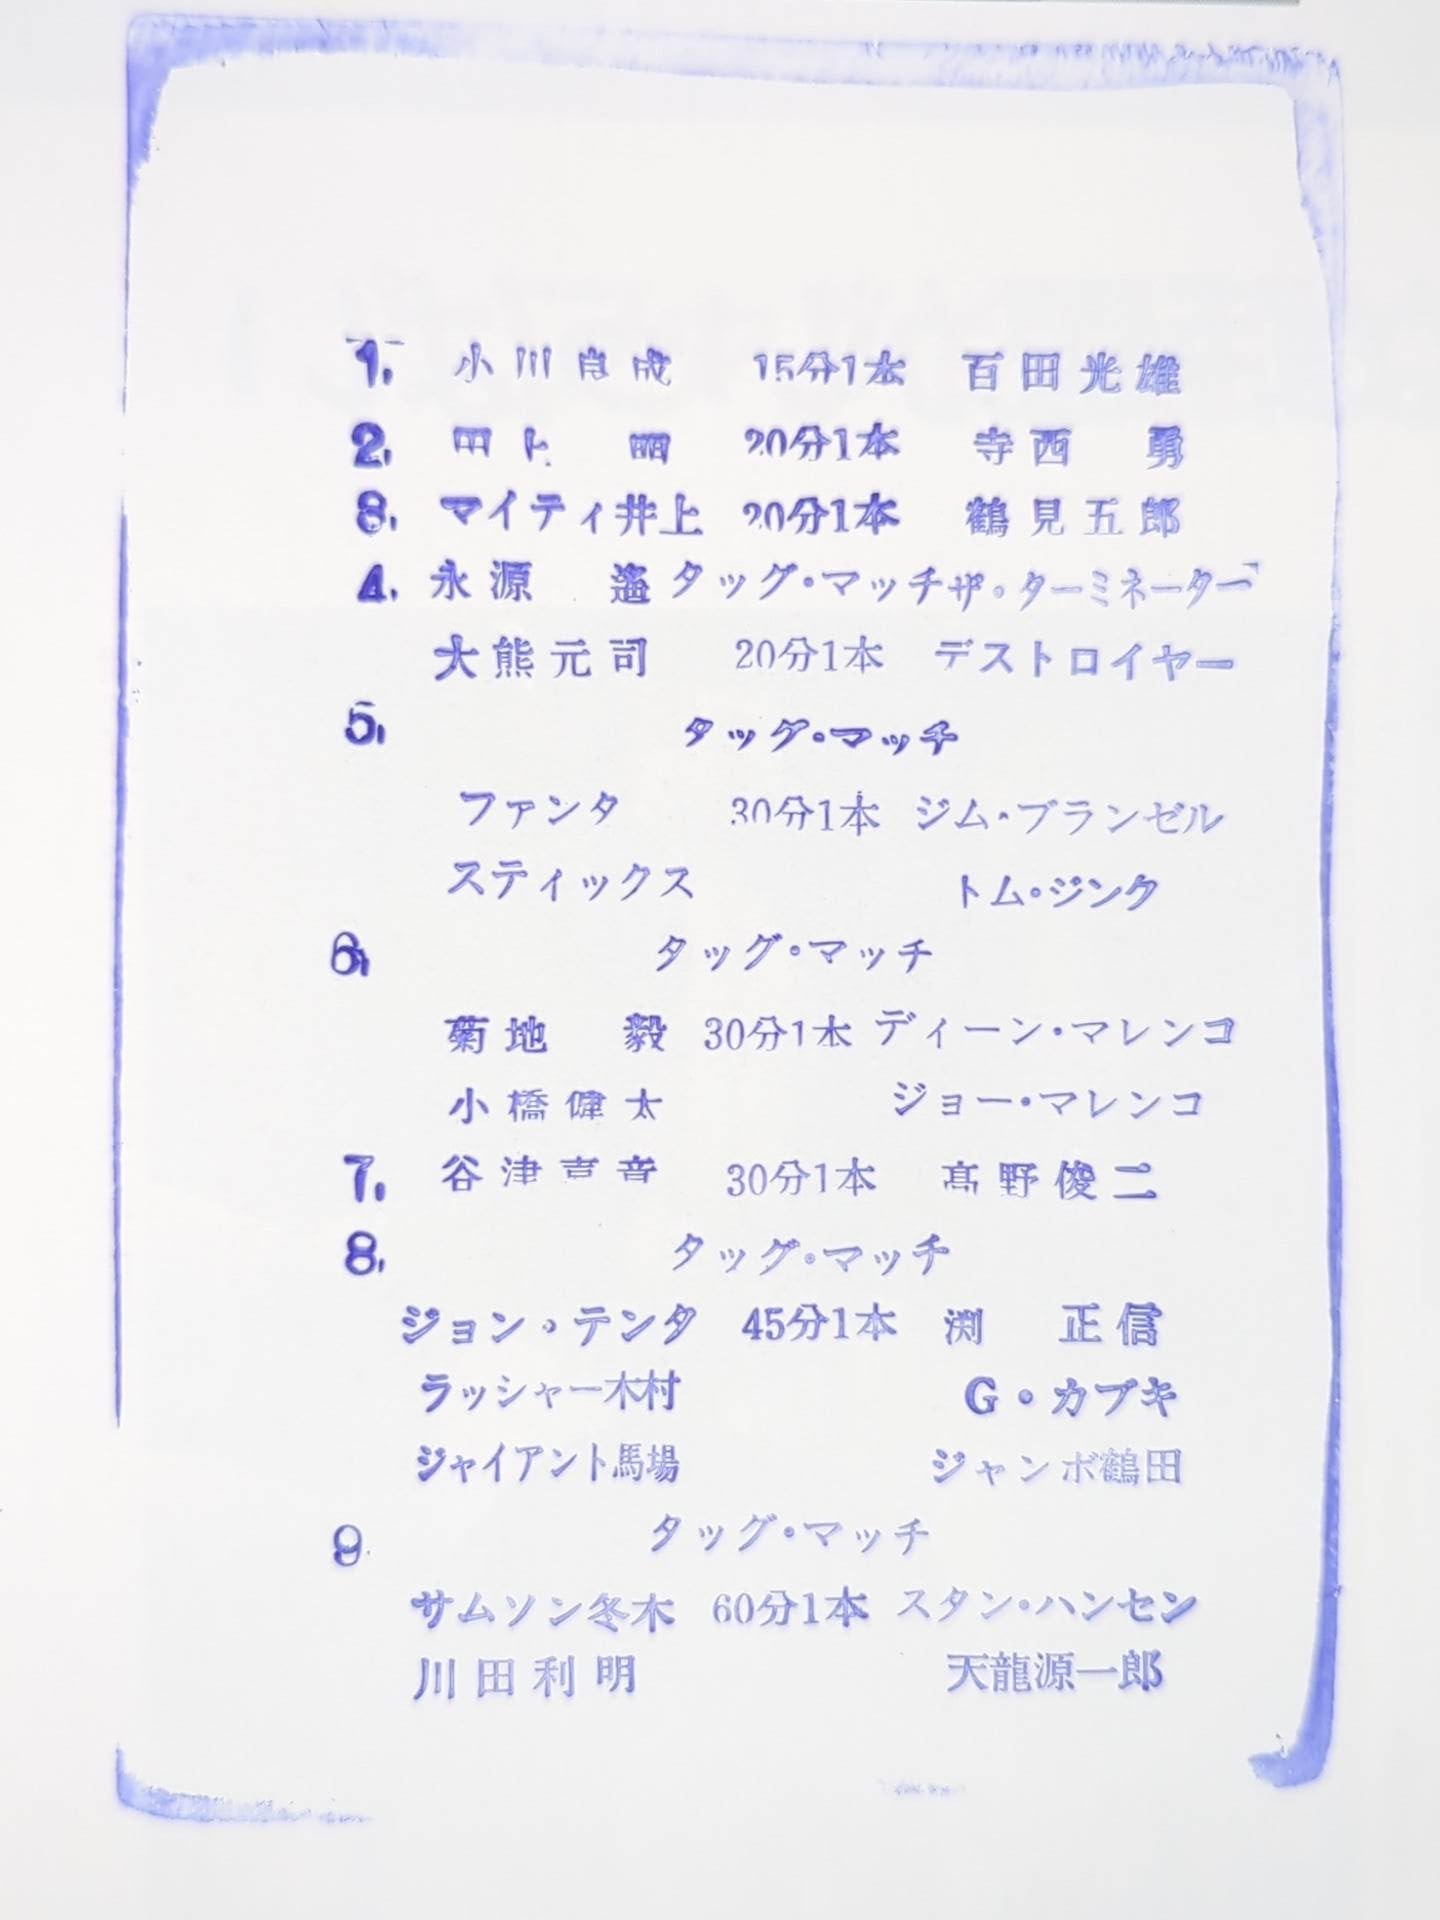 1. 小川良成 15分1本 百田光雄
2. 田上 明 20分1本 寺西 勇
3. マイティ井上 20分1本 鶴見五郎
4. 永源 遙 タッグ・マッチ ザ・ターミネーター
大熊元司 20分1本 デストロイヤー
5. タッグ・マッチ
ファンタ 30分1本 ジム・ブランゼル
スティックス トム・ジンク
6. タッグ・マッチ
菊地 毅 30分1本 ディーン・マレンコ
小橋健太 ジョー・マレンコ
7. 谷津嘉章 30分1本 高野俊二
8. タッグ・マッチ
ジョン・テンタ 45分1本 渕 正信
ラッシャー木村 G・カブキ
ジャイアント馬場 ジャンボ鶴田
9. タッグ・マッチ
サムソン冬木 60分1本 スタン・ハンセン
川田利明 天龍源一郎